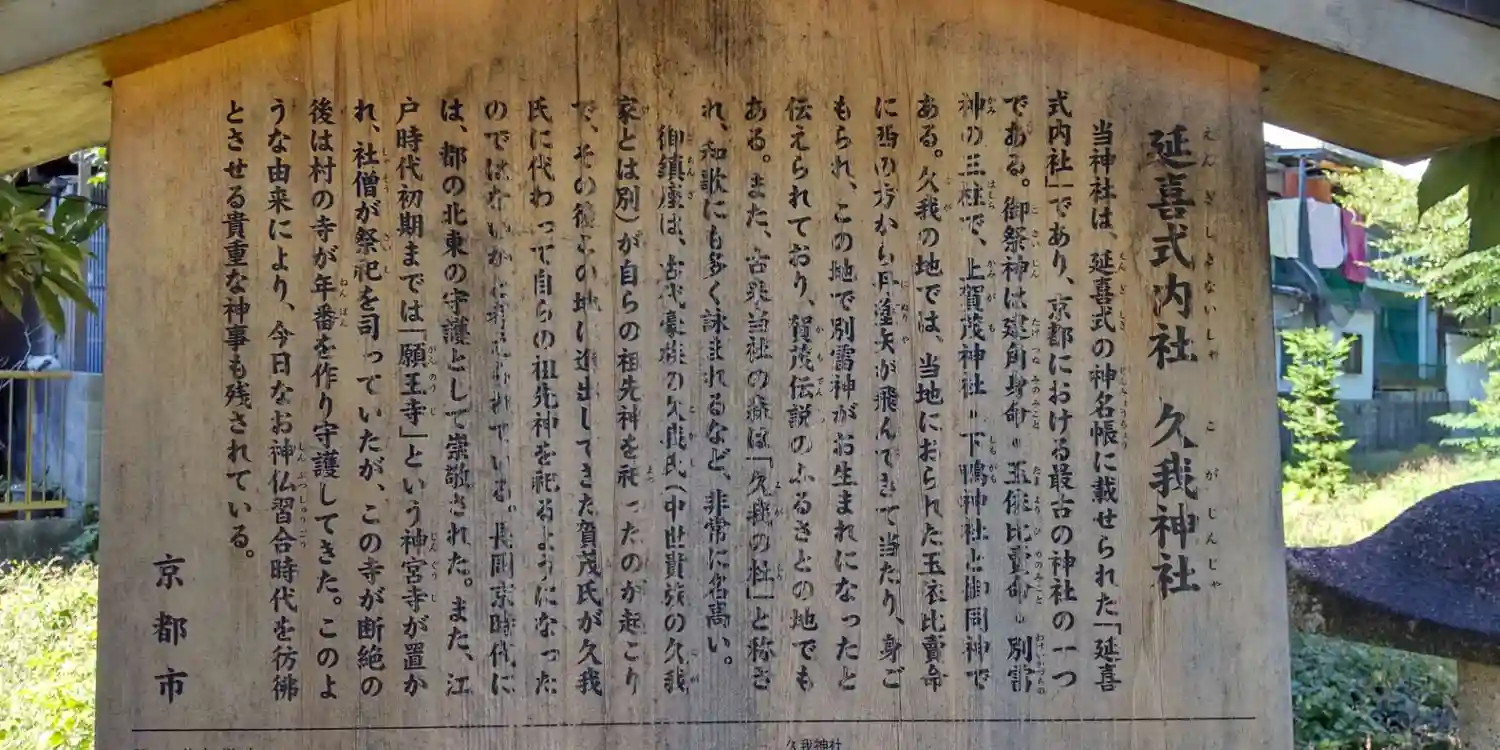 延喜式内社 久我神社
えんぎしきないしゃ こがじんじゃ
当神社は、延喜式の神名帳に載せられた「延喜
式内社」であり、京都における最古の神社の一つ
である。御祭神は建角身命・玉依比賣命・別雷
神の三柱で、上賀茂神社・下鴨神社と御同神で
ある。久我の地では、当地におられた玉依比賣命
に西の方から丹塗矢が飛んできて当たり、身ご
もられ、この地で別雷神がお生まれになったと
伝えられており、賀茂伝説のふるさとの地でも
ある。また、古来当社の森は「久我の杜」と称さ
れ、和歌にも多く詠まれるなど、非常に名高い。
御鎮座は、古代豪族の久我氏(中世貴族の久我
家とは別)が自らの祖先神を祀ったのが起こり
で、その後この地に進出してきた賀茂氏が久我
氏に代わって自らの祖先神を祀るようになった
のではないかと考えられている。長岡京時代に
は、都の北東の守護として崇敬された。また、江
戸時代初期までは「願王寺」という神宮寺が置か
れ、社僧が祭祀を司っていたが、この寺が断絶の
後は村の寺が年番を作り守護してきた。このよ
うな由来により、今日なお神仏習合時代を彷彿
とさせる貴重な神事も残されている。
京都市
久我神社